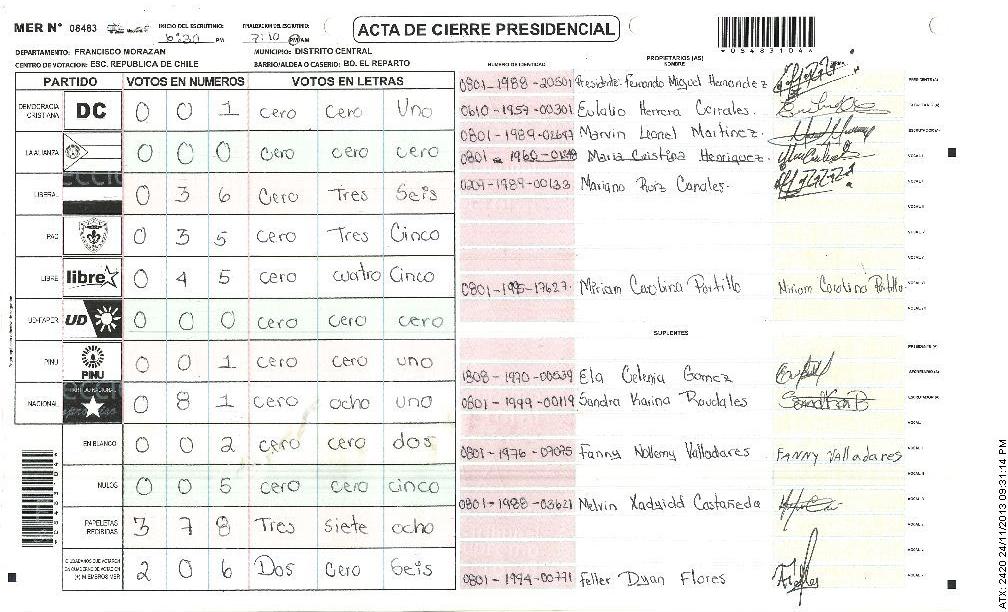 MER N° 08483
INICIO DEL ESCRUTINIO: 6:30 PM
FINALIZACION DEL ESCRUTINIO: 7:10 PM AM
ACTA DE CIERRE PRESIDENCIAL
DEPARTAMENTO: FRANCISCO MORAZAN
MUNICIPIO: DISTRITO CENTRAL
CENTRO DE VOTACION: ESC. REPUBLICA DE CHILE
BARRIO/ALDEA O CASERIO: BO. EL REPARTO
PARTIDO VOTOS EN NUMEROS VOTOS EN LETRAS
DEMOCRACIA CRISTIANA DC 0 0 1 cero cero Uno
LA ALIANZA 0 0 0 cero cero cero
LIBERAL 0 3 6 Cero Tres Seis
PAC 0 3 5 cero Tres Cinco
LIBRE libre 0 4 5 cero cuatro Cinco
UD-FAPER UD 0 0 0 cero cero cero
PINU PINU 0 0 1 cero cero uno
NACIONAL 0 8 1 cero ocho uno
EN BLANCO 0 0 2 cero cero dos
NULOS 0 0 5 cero cero cinco
PAPELETAS RECIBIDAS 3 7 8 Tres siete ocho
CIUDADANOS QUE VOTARON EN CUADERNO DE VOTACION (+) MIEMBROS MER 2 0 6 Dos Cero Seis
NUMERO DE IDENTIDAD
PROPIETARIOS (AS)
NOMBRE
0801-1988-20501 Presidente: Fernando Miguel Hernandez
0610-1957-00301 Eulalio Herrera Corrales.
Marvin Leonel Martinez.
Maria Cristina Henriquez.
0209-1989-00133 Mariano Ruiz Canales.
0801-1995-17627. Miriam Carolina Portillo Miriam Carolina Portillo
SUPLENTES
1808-1970-00539 Ela Celenia Gomez
0801-1999-00119 Sandra Karina Raudales
0801-1976-07075 Fanny Nollemy Valladares FANNY Valladares
0801-1988-03621 Melvin Castañeda
0801-1974-00771 Felter Dyan Flores
ATX: 2420 24/11/2013 09:31:14 PM